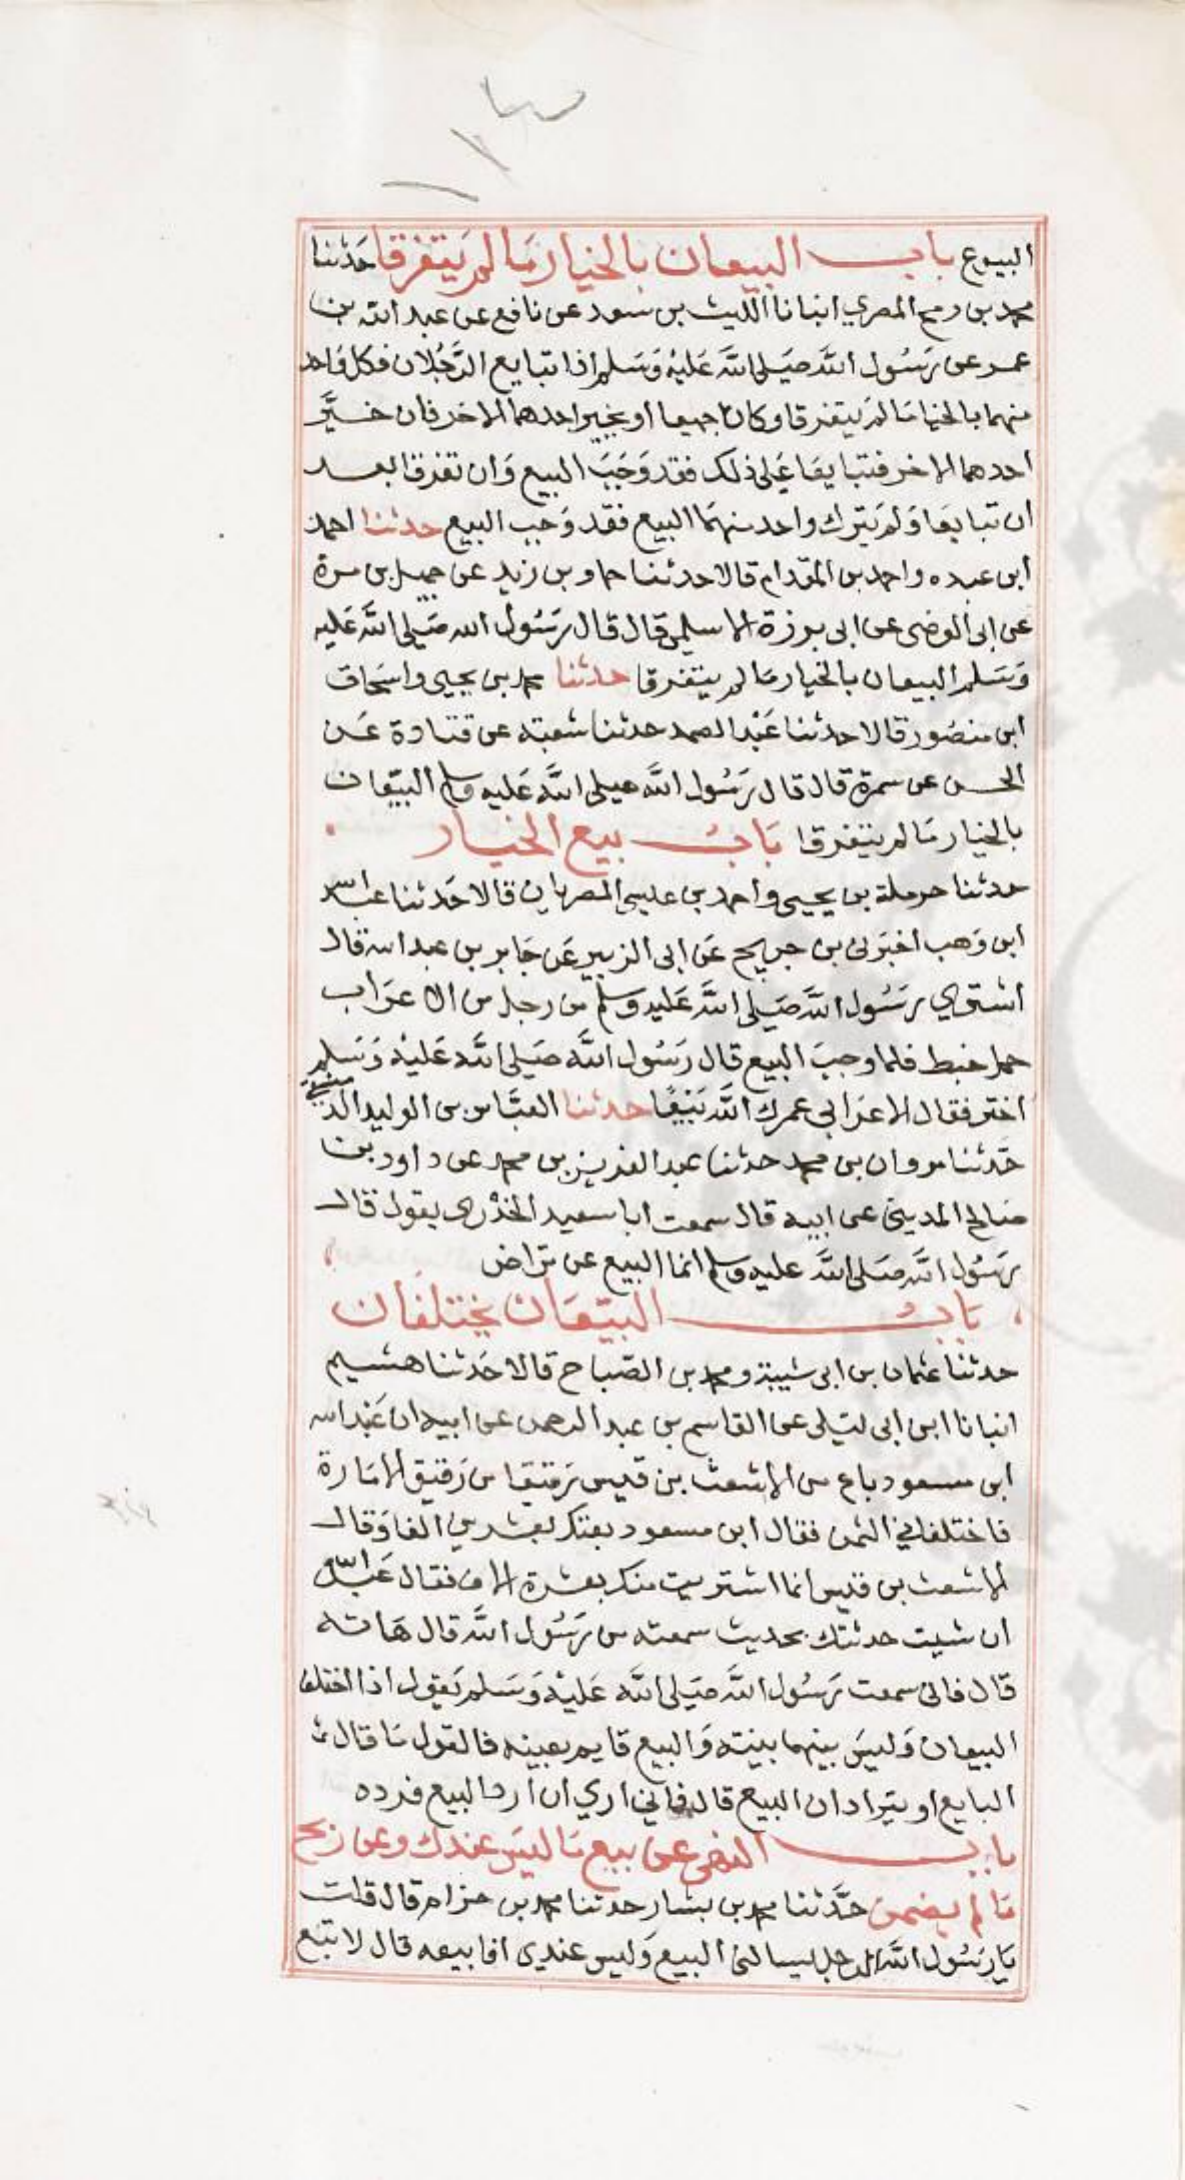 البيوع باب البيعان بالخيار ما لم يتفرقا حدثنا
محمد بن رمح المصري انبانا الليث بن سعد عن نافع عن عبد الله بن
عمر عن رسول الله صلى الله عليه وسلم اذا تبايع الرجلان فكل واحد
منهما بالخيا ما لم يتفرقا وكانا جميعا او يخير احدهما الاخر فان خير
احدهما الاخر فتبايعا على ذلك فقد وجب البيع وان تفرقا بعد
ان تبايعا ولم يترك واحد منهما البيع فقد وجب البيع حدثنا احمد
ابن عبده واحمد بن المقدام قالا حدثنا حماد بن زيد عن جميل بن مرة
عن ابي الوضى عن ابي برزة الاسلمي قال قال رسول الله صلى الله عليه
وسلم البيعان بالخيار ما لم يتفرقا حدثنا محمد بن يحيى واسحاق
ابن منصور قالا حدثنا عبد الصمد حدثنا شعبة عن قتادة عن
الحسن عن سمرة قال قال رسول الله صلى الله عليه وسلم البيعان
بالخيار ما لم يتفرقا باب بيع الخيار
حدثنا حرملة بن يحيى واحمد بن عيسى المصريان قالا حدثنا عبد الله
ابن وهب اخبرني بن جريج عن ابي الزبير عن جابر بن عبد الله قال
اشتري رسول الله صلى الله عليه وسلم من رجل من الاعراب
حمل خبط فلما وجب البيع قال رسول الله صلى الله عليه وسلم
اختر فقال الاعرابي عمرك الله بيعا حدثنا العباس بن الوليد الدمشقي
حدثنا مروان بن محمد حدثنا عبد العزيز بن محمد عن داود بن
صالح المديني عن ابيه قال سمعت ابا سعيد الخدري يقول قال
رسول الله صلى الله عليه وسلم انما البيع عن تراض
باب البيعان يختلفان
حدثنا عثمان بن ابي شيبة ومحمد بن الصباح قالا حدثنا هشيم
انبانا ابن ابي ليلى عن القاسم بن عبد الرحمن عن ابيه ان عبد الله
ابن مسعود باع من الاشعث بن قيس رقيقا من رقيق الامارة
فاختلفا في الثمن فقال ابن مسعود بعتك بعشرين الفا وقال
الاشعث بن قيس انما اشتريت منك بعشرة الاف فقال عبد الله
ان شيت حدثتك بحديث سمعته من رسول الله قال هاته
قال فاني سمعت رسول الله صلى الله عليه وسلم يقول اذا اختلف
البيعان وليس بينهما بينة والبيع قايم بعينه فالقول ما قال
البايع او يترادان البيع قال فاني اري ان ارد البيع فرده
باب النهي عن بيع ما ليس عندك وعن ربح
ما لم يضمن حدثنا محمد بن بشار حدثنا محمد بن حزام قال قلت
يا رسول الله الرجل يسالني البيع وليس عندي افابيعه قال لا تبع